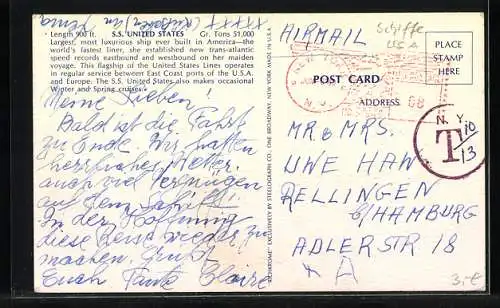 Length 900 ft. S.S. UNITED STATES Gr. Tons 51,000
Largest, most luxurious ship ever built in America—the
world's fastest liner, she established new trans-atlantic
speed records eastbound and westbound on her maiden
voyage. This flagship of the United States Lines operates
in regular service between East Coast ports of the U.S.A.
and Europe. The S.S. United States also makes occasional
Winter and Spring cruises.
Meine Lieben,
Bald ist die Fahrt
zu Ende. Wir hatten
herrliches Wetter,
auch viel Vergnügen
auf dem Schiff.
In der Hoffnung
diese Reise wieder zu
machen. Grüßt
Euch Tante Claire
EXCLUSIVELY BY STEELOGRAPH CO., ONE BROADWAY, NEW YORK MADE IN U.S.A.
AIRMAIL
Schiffe
USA
PLACE
STAMP
HERE
POST CARD
ADDRESS
N.Y.
T 10/13
MR & MRS.
UWE HAN
RELLINGEN
b/HAMBURG
ADLERSTR 18
A
3.-€